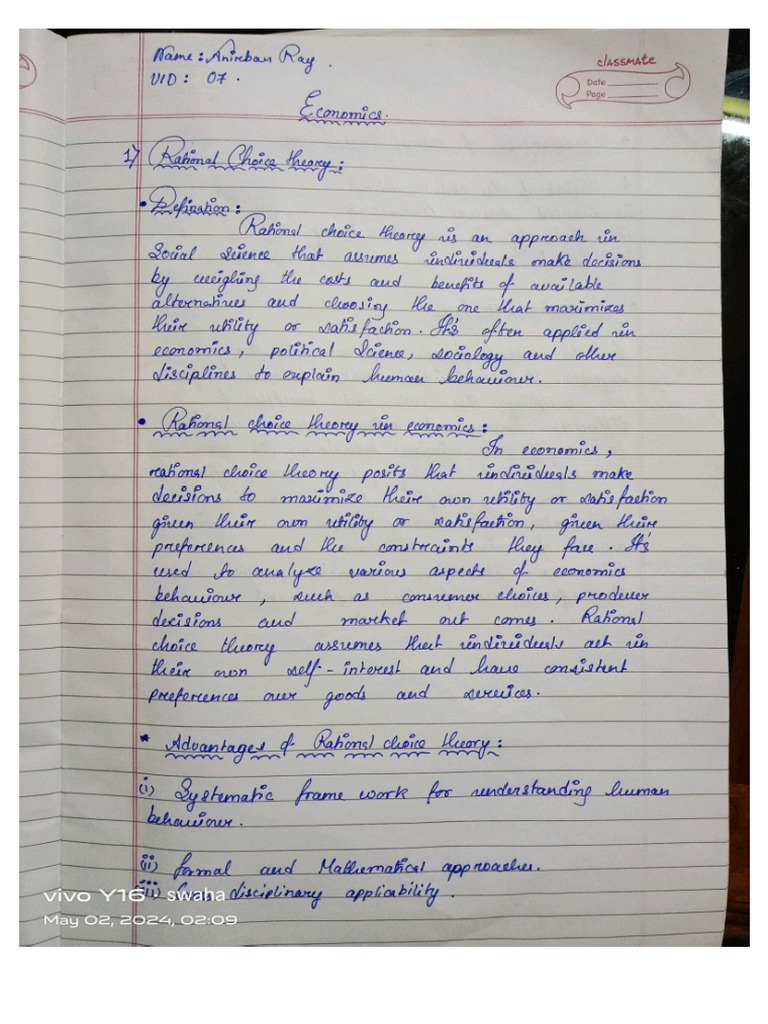 Name: Anirban Ray.
UID: 07.
classmate
Date
Page
Economics.
1) Rational Choice theory:
• Defination:
Rational choice theory is an approach in
Social Science that assumes individuals make decisions
by weighing the costs and benefits of available
alternatives and choosing the one that maximizes
their utility or satisfaction. It's often applied in
economics, political Science, sociology and other
disciplines to explain human behaviour.
• Rational choice theory in economics:
In economics,
rational choice theory posits that individuals make
decisions to maximize their own utility or satisfaction
given their own utility or satisfaction, given their
preferences and the constraints they face. It's
used to analyze various aspects of economics
behaviour, such as consumer choices, producer
decisions and market out comes. Rational
choice theory assumes that individuals act in
their own self-interest and have consistent
preferences over goods and services.
* Advantages of Rational choice theory:
(i) Systematic frame work for understanding human
behaviour.
(ii) formal and Mathematical approaches.
(iii) Cross disciplinary applicability.
vivo Y16 · swaha
May 02, 2024, 02:09